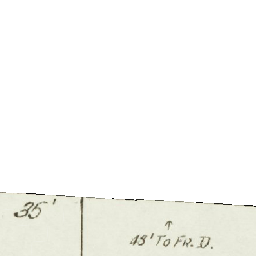 35'
↑
45' TO FR. D.